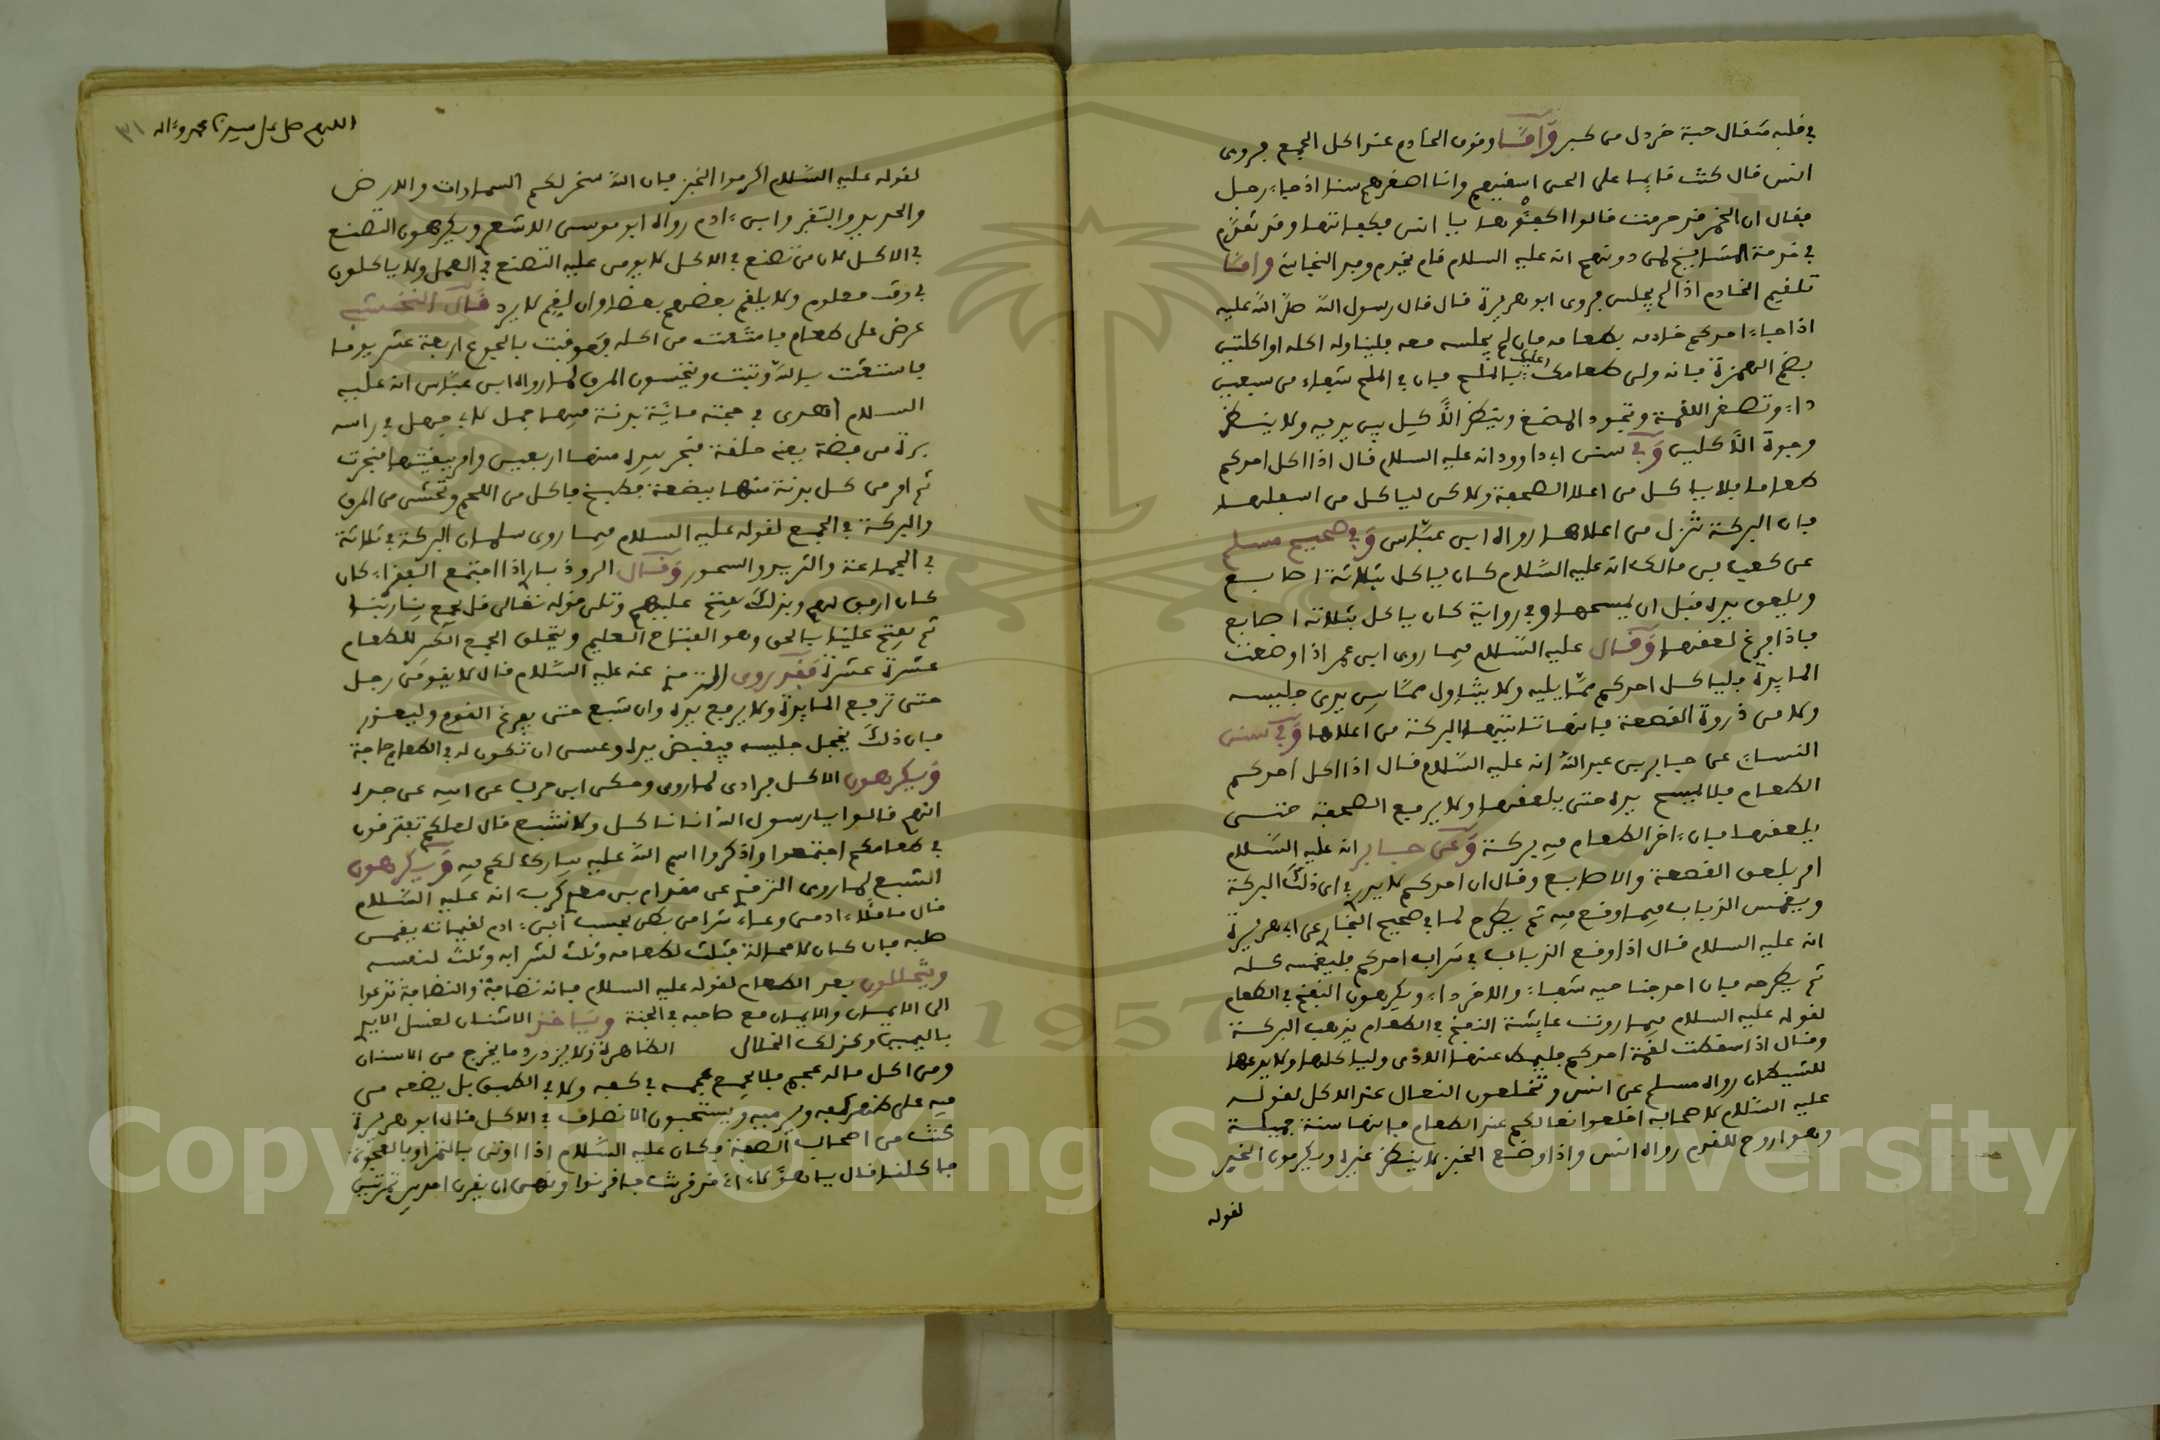 في قلبه مثقال حبة خردل من كبر وأمّا وقوف الخادم عند أكل الجمع فروى
انس قال كنت قايما على الحي اسقيهم وانا اصغرهم سنا اذ جاء رجل
فقال ان الخمر قد حرمت قالوا اكفئوها يا انس فكفأتها وقد تقدّم
في خدمة المشايخ لمن دونهم انه عليه السلام قام يخدم وفد النجاشي وأمّا
تلقيم الخادم اذا لم يجلس فروى ابو هريرة قال قال رسول اللّه صلّى اللّه عليه
اذا جاء احدكم خادمه بطعامه فان لم يجلسه معه فليناوله اكلة او اكلتين
بضم الهمزة فانه ولي طعامه عليك بالملح فان في الملح شفاء من سبعين
داء وتصغر اللقمة وتجود المضغ وينظر الآكل بين يديه ولا ينظر
وجوه الآكلين وفي سنن ابي داوود انه عليه السلام قال اذا اكل احدكم
طعاما فلا ياكل من اعلا الصحفة ولاكن لياكل من اسفلها
فان البركة تنزل من اعلاها رواه ابن عبّاس وفي صحيح مسلم
عن كعب بن مالك انه عليه السّلام كان ياكل بثلاثة اصابع
ويلعق يده قبل ان يمسحها وفي رواية كان ياكل بثلاثة اصابع
فاذا فرغ لعقها وقال عليه السّلام فيما روى ابن عمر اذا وضعت
المايدة فلياكل احدكم ممّا يليه ولا يتناول ممّا بين يدي جليسه
ولا من ذروة القصعة فانها تاتيها البركة من اعلاها وفي سنن
النسائي عن جابر بن عبد اللّه انه عليه السّلام قال اذا اكل احدكم
الطعام فلا يمسح يده حتى يلعقها ولا يرفع الصحفة حتى
يلعقها فان ءاخر الطعام فيه بركة وعن جابر انه عليه السّلام
امر بلعق القصعة والاصابع وقال ان احدكم لا يدري في اي ذلك البركة
ويغمس الذباب فيما وقع فيه ثم يطرح لما في صحيح البخاري عن ابي هريرة
انه عليه السلام قال اذا وقع الذباب في شراب احدكم فليغمسه كله
ثم يطرحه فان احد جناحيه شفاء والاخر داء ويكرهون النفخ في الطعام
لقوله عليه السلام فيما روت عايشة النفخ في الطعام يذهب البركة
وقال اذا سقطت لقمة احدكم فليمط عنها الاذى ولياكلها ولا يدعها
للشيطان رواه مسلم عن انس وتخلعون النعال عند الاكل لقوله
عليه السّلام لاصحابه اخلعوا نعالكم عند الطعام فانها سنة جميلة
وهو اروح للقدم رواه انس واذا وضع الخبز لا ينتظر غيره ويكرمون الخبز
لقوله
اللهم صل على سيدنا محمد وءاله ٣١
لقوله عليه السّلام اكرموا الخبز فان اللّه سخر لكم السماوات والارض
والحديد والبقر وابن ءادم رواه ابو موسى الاشعري ويكرهون التصنع
في الاكل لان من تصنع في الاكل لا يومن عليه التصنع في العمل ولا ياكلون
في وقت معلوم ولا يلقم بعضهم بعضا وان لقم لا يرد قال النخشبي
عرض علي طعام فامتنعت من اكله فعوقبت بالجوع اربعة عشر يوما
فاستغثت باللّه وتبت ويتحسون المرق لما رواه ابن عبّاس انه عليه
السلام اهدى في حجته مائة بدنة فيها جمل لابي جهل في راسه
برة من فضة يعني حلقة فنحر بيده منها اربعين وامر ببقيتها فنحرت
ثم امر من كل بدنة منها ببضعة فطبخ فاكل من اللحم وتحسى من المرق
والبركة في الجمع لقوله عليه السلام فيما روى سلمان البركة في ثلاثة
في الجماعة والثريد والسحور وقال الروذباري اذا اجتمع الفقراء كان
كان ارفق لهم وبذلك يفتح عليهم وتلى قوله تعالى قل يجمع بيننا ربّنا
ثم يفتح علينا بالحق وهو الفتاح العليم ويتحلق الجمع الكثير للطعام
عشرة عشرة فقد روى الترمذي عنه عليه السّلام قال لا يقومن رجل
حتى ترفع المايدة ولا يرفع يده وان شبع حتى يفرغ القوم وليعذر
فان ذلك يخجل جليسه فيقبض يده وعسى ان تكون له في الطعام حاجة
ويكرهون الاكل فرادى لما روى وحشي ابن حرب عن ابيه عن جده
انهم قالوا يا رسول اللّه اننا ناكل ولا نشبع قال لعلكم تفترقون
في طعامكم اجتمعوا واذكروا اسم اللّه عليه يبارك لكم فيه ويكرهون
الشبع لما روى الترمذي عن مقدام بن معدي كرب انه عليه السّلام
قال ما ملأ ءادمي وعاء شرا من بطن بحسب ابن ءادم لقيمات يقمن
صلبه فان كان لا محالة فثلث لطعامه وثلث لشرابه وثلث لنفسه
ويتخللون بعد الطعام لقوله عليه السلام فانه نظافة والنظافة تدعوا
الى الايمان والايمان مع صاحبه في الجنة وياخذ الاشنان لغسل الايدي
باليمين وكذلك الخلال الطاهرة ولا يزدرد ما يخرج من الاسنان
ومن اكل ما له عجم فلا يجمع عجمه في كفه ولا في الطبق بل يضعه من
فيه على ظهر كفه ويرميه ويستحبون الانصاف في الاكل قال ابو هريرة
كنت من اصحاب الصفة فكان عليه السّلام اذا اوتي بالتمر او بالعجوة
فاكلنا قال يا هؤلاء اني قد قرنت فاقرنوا ونهى ان يقرن احد بين تمرتين